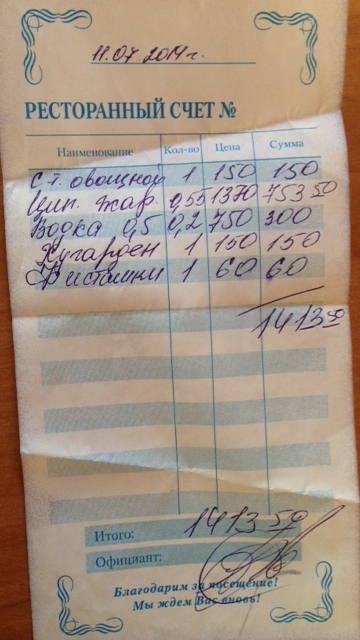 11.07.2014г.
РЕСТОРАННЫЙ СЧЕТ №
Наименование Кол-во Цена Сумма
С-т. овощной 1 150 150
Цып. жар. 0,55 1370 753 50
Водка 0,5 0,2 750 300
1 150 150
Фисташки 1 60 60
1413 50
Итого: 1413 50
Официант:
Благодарим за посещение!
Мы ждем Вас вновь!